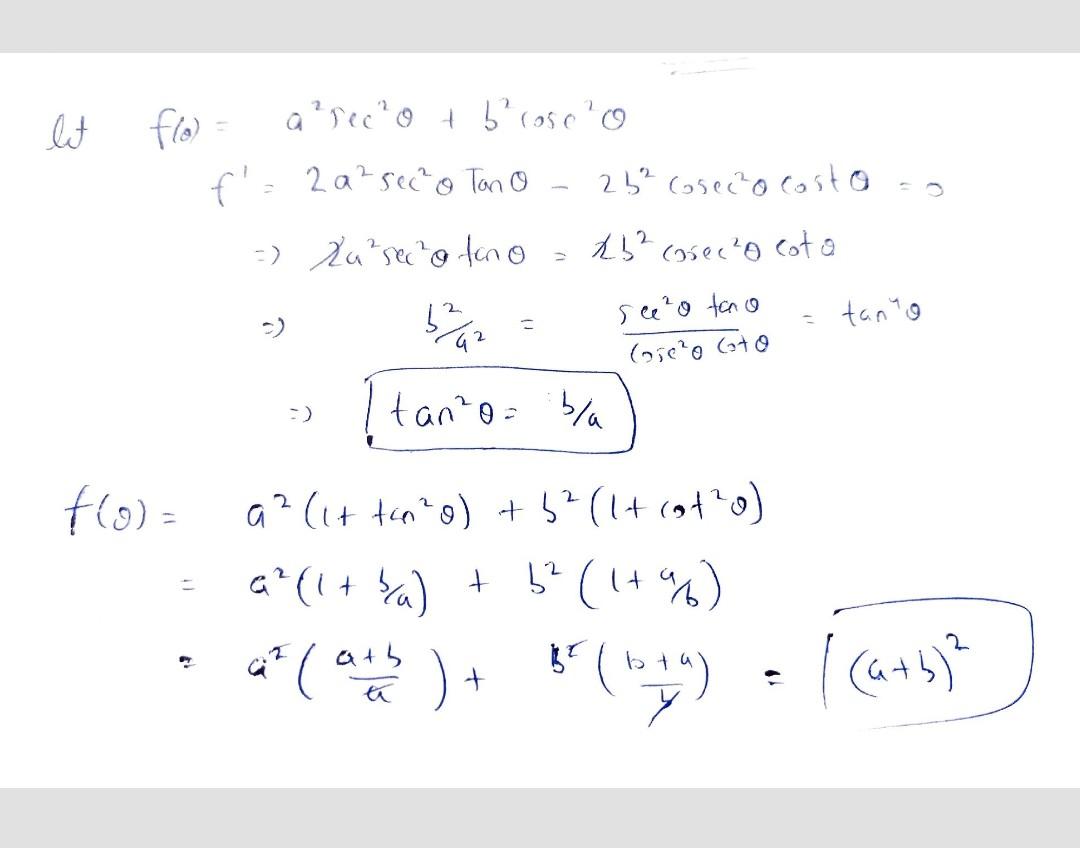 let f(θ) = a²sec²θ + b²cosec²θ
f' = 2a²sec²θ Tanθ - 2b² cosec²θ costθ = 0
=) 2a²sec²θ tanθ = 2b² cosec²θ cotθ
=) b²/a² = sec²θ tanθ / cosec²θ cotθ = tan⁴θ
=) tan²θ = b/a
f(θ) = a²(1 + tan²θ) + b²(1 + cot²θ)
= a²(1 + b/a) + b²(1 + a/b)
= a²(a+b / a) + b²(b+a / b) = (a+b)²